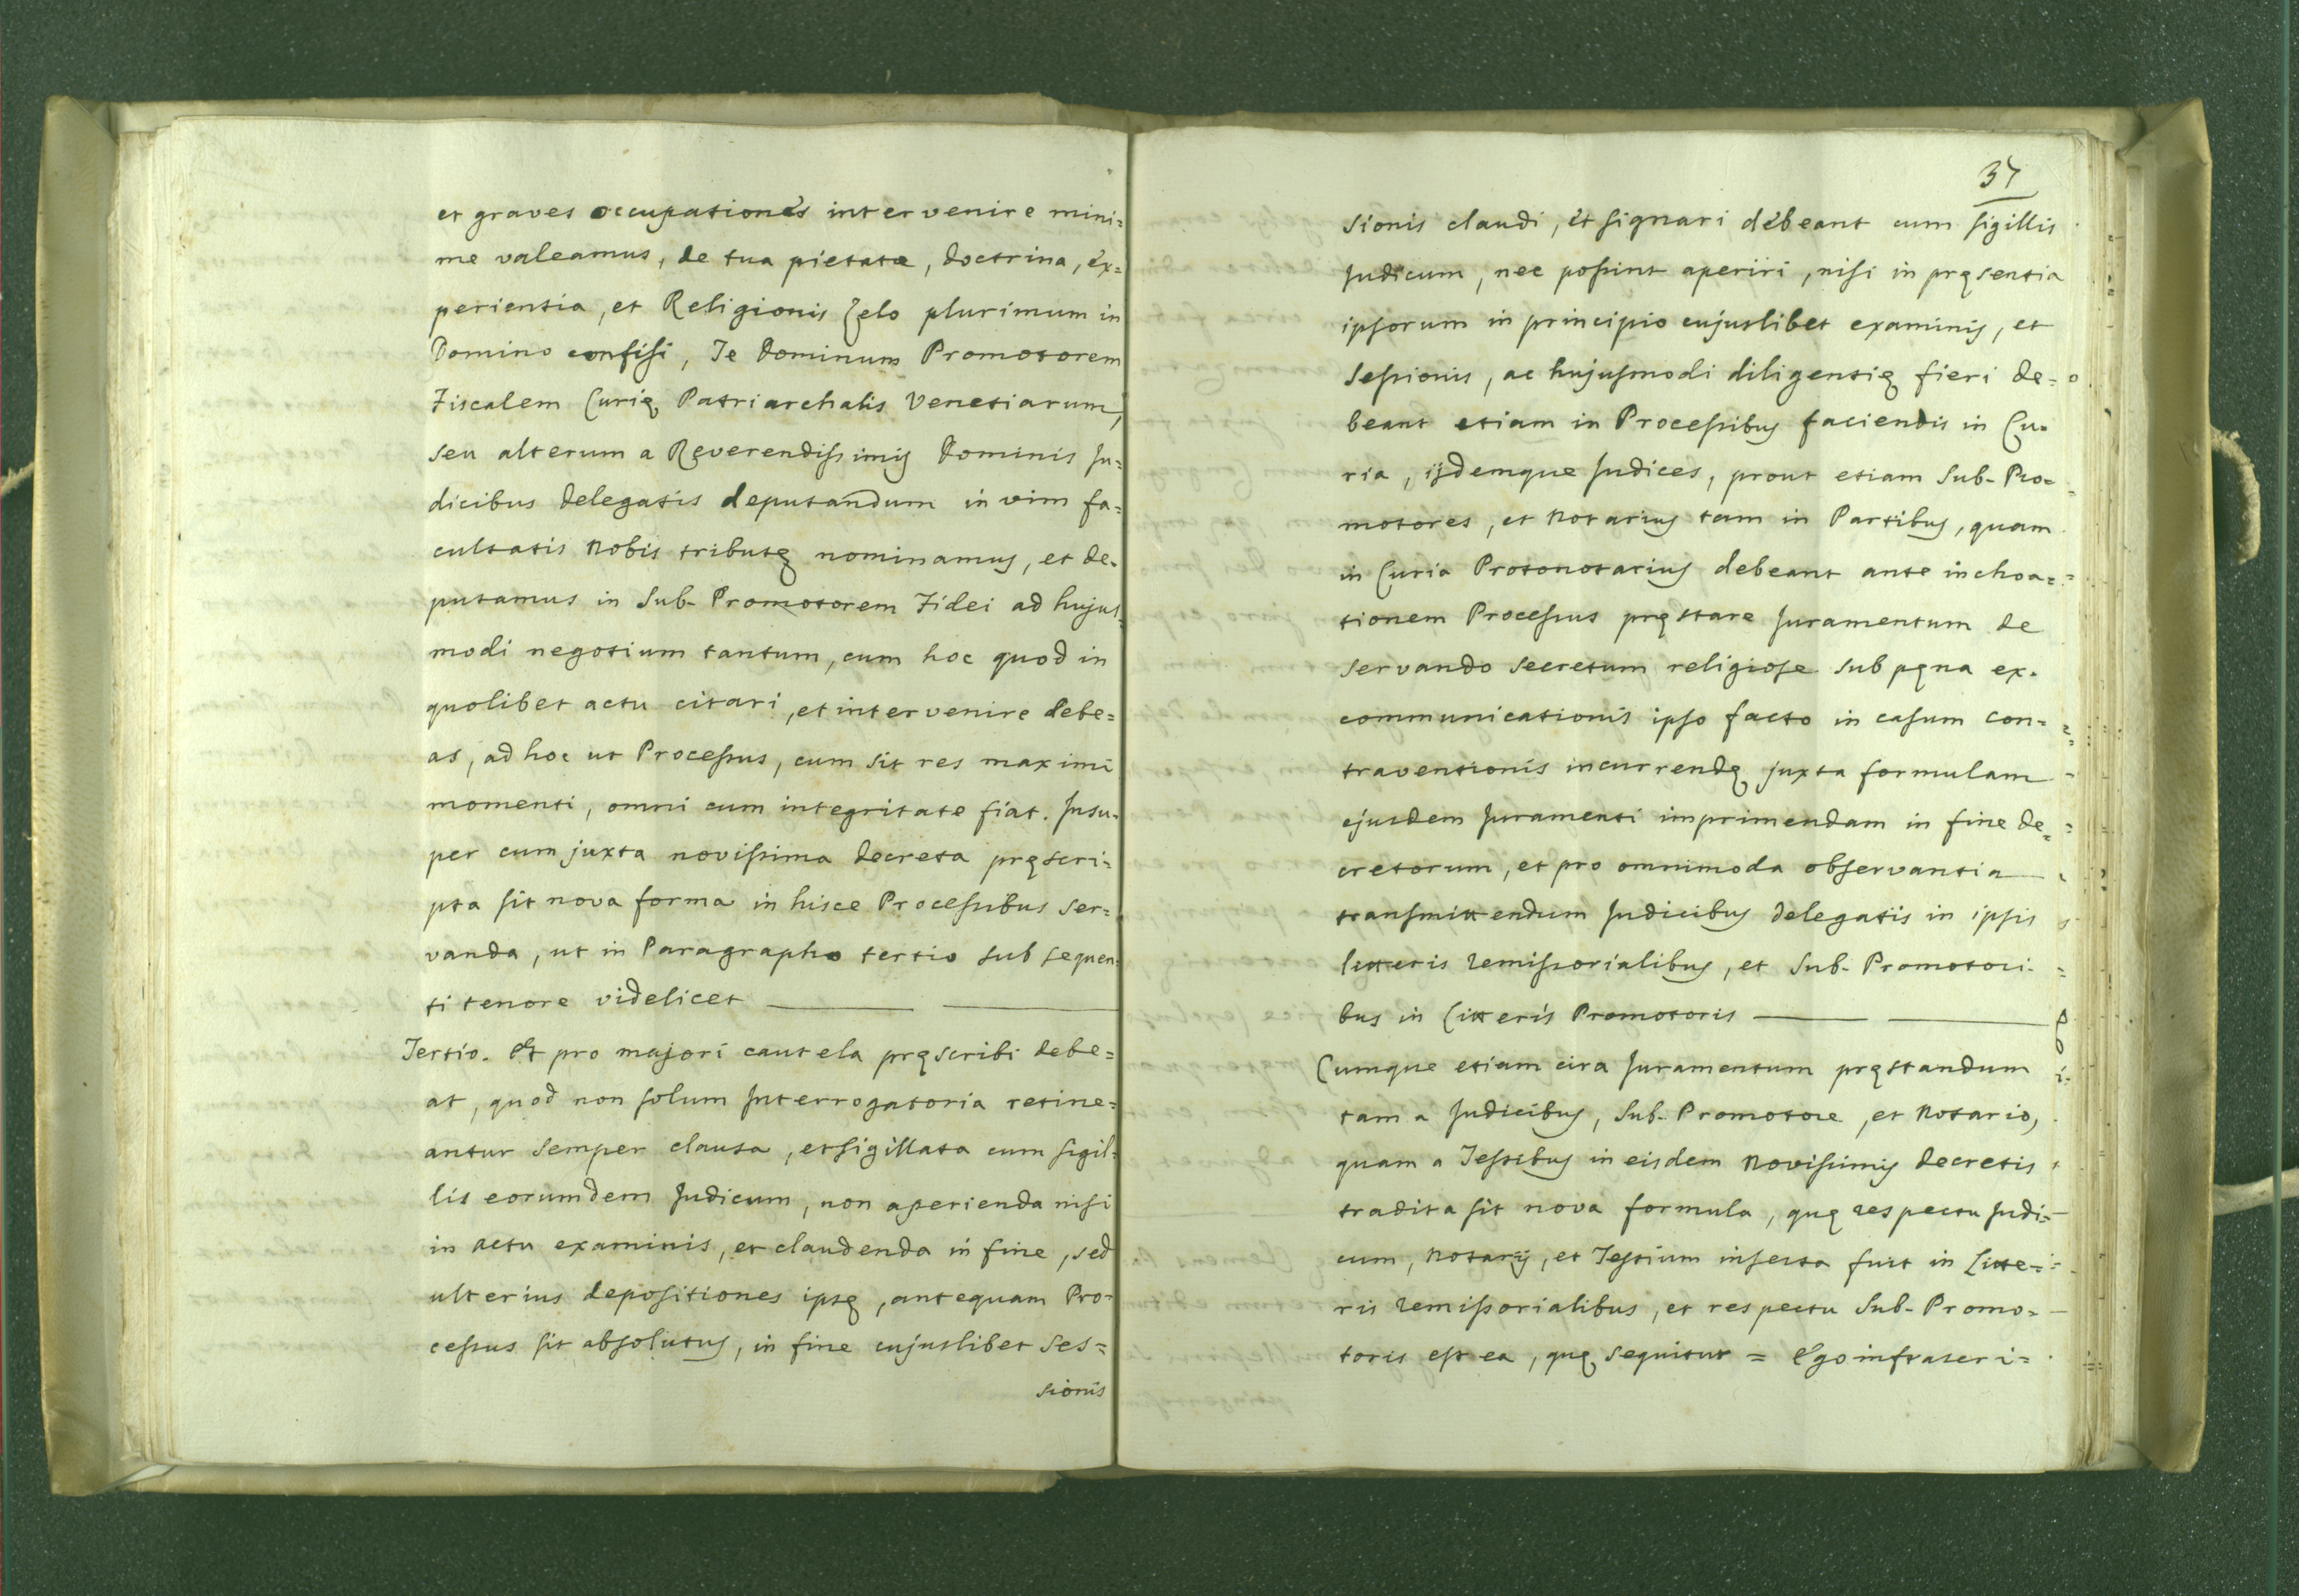 et graves occupationes intervenire mini=
me valeamus, de tua pietate, doctrina, ex=
perientia, et Religionis Zelo plurimum in
Domino confisi, Te Dominum Promotorem
Fiscalem Curię Patriarchalis Venetiarum,
seu alterum a Reverendissimis Dominis Ju=
dicibus delegatis deputandum in vim fa=
cultatis Nobis tributę nominamus, et de=
putamus in Sub-Promotorem Fidei ad hujus=
modi negotium tantum, cum hoc quod in
quolibet actu citari, et intervenire debe=
as, ad hoc ut Processus, cum sit res maximi
momenti, omni cum integritate fiat. Insu=
per cum juxta novissima decreta pręscri=
pta sit nova forma in hisce Processibus ser=
vanda, ut in Paragrapho tertio sub sequen=
ti tenore videlicet
Tertio. Et pro majori cautela pręscribi debe=
at, quod non solum Interrogatoria retine=
antur semper clausa, et sigillata cum sigil=
lis eorumdem Judicum, non aperienda nisi
in actu examinis, et claudenda in fine, sed
ulterius depositiones ipsę, antequam Pro=
cessus sit absolutus, in fine cujuslibet Ses=
sionis
37
sionis claudi, et signari debeant cum sigillis
Judicum, nec possint aperiri, nisi in pręsentia
ipsorum in principio cujuslibet examinis, et
Sessionis, ac hujusmodi diligentię fieri de=
beant etiam in Processibus faciendis in Cu=
ria, ijdemque Judices, prout etiam Sub-Pro=
motores, et Notarius tam in Partibus, quam
in Curia Protonotarius debeant ante inchoa=
tionem Processus pręstare Juramentum de
servando secretum religiose sub pęna ex=
communicationis ipso facto in casum con=
traventionis incurrendę juxta formulam
ejusdem Juramenti imprimendam in fine de=
cretorum, et pro omnimoda observantia
transmittendum Judicibus delegatis in ipsis
litteris remissorialibus, et Sub-Promotori=
bus in Litteris Promotoris
Cumque etiam circa Juramentum pręstandum
tam a Judicibus, Sub-Promotore, et Notario,
quam a Testibus in eisdem Novissimis decretis
tradita sit nova formula, quę respectu Judi=
cum, Notarij, et Testium inserta fuit in Litte=
ris remissorialibus, et respectu Sub-Promo=
toris est ea, quę sequitur = Ego infrascri=